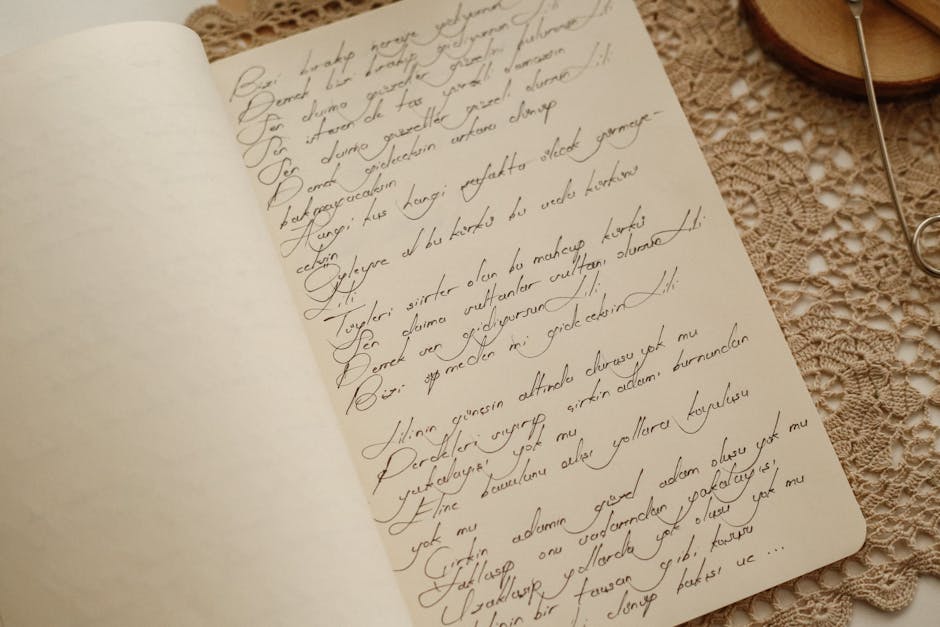 Bizi bırakıp nereye gidiyorsun
Demek bizi bırakıp gidiyorsun Lili
Sen daima güzeller güzelini bulursun Lili
Sen istesen de taş yürekli olamazsın
Sen daima güzeller güzeli olursun Lili
Demek gideceksin arkana dönüp
bakmayacaksın
Hangi kuş hangi şafakta ölecek görmeye-
ceksin
Öyleyse al bu kürkü bu veda kürkünü
Lili
Tüyleri şiirler olan bu mahcup kürkü
Sen daima sultanlar sultanı olursun Lili
Demek sen gidiyorsun Lili
Bizi öpmeden mi gideceksin Lili
Lilinin güneşin altında duruşu yok mu
Perdeleri sıyırıp çirkin adamı burnundan
yakalayışı yok mu
Eline bavulunu alışı yollara koyuluşu
yok mu
Çirkin adamın güzel adam oluşu yok mu
Yaklaşıp onu yakalayışı
Uzaklaşıp yollarda yok oluşu yok mu
bir tavşan gibi koşusu
dönüp bakışı ve ...